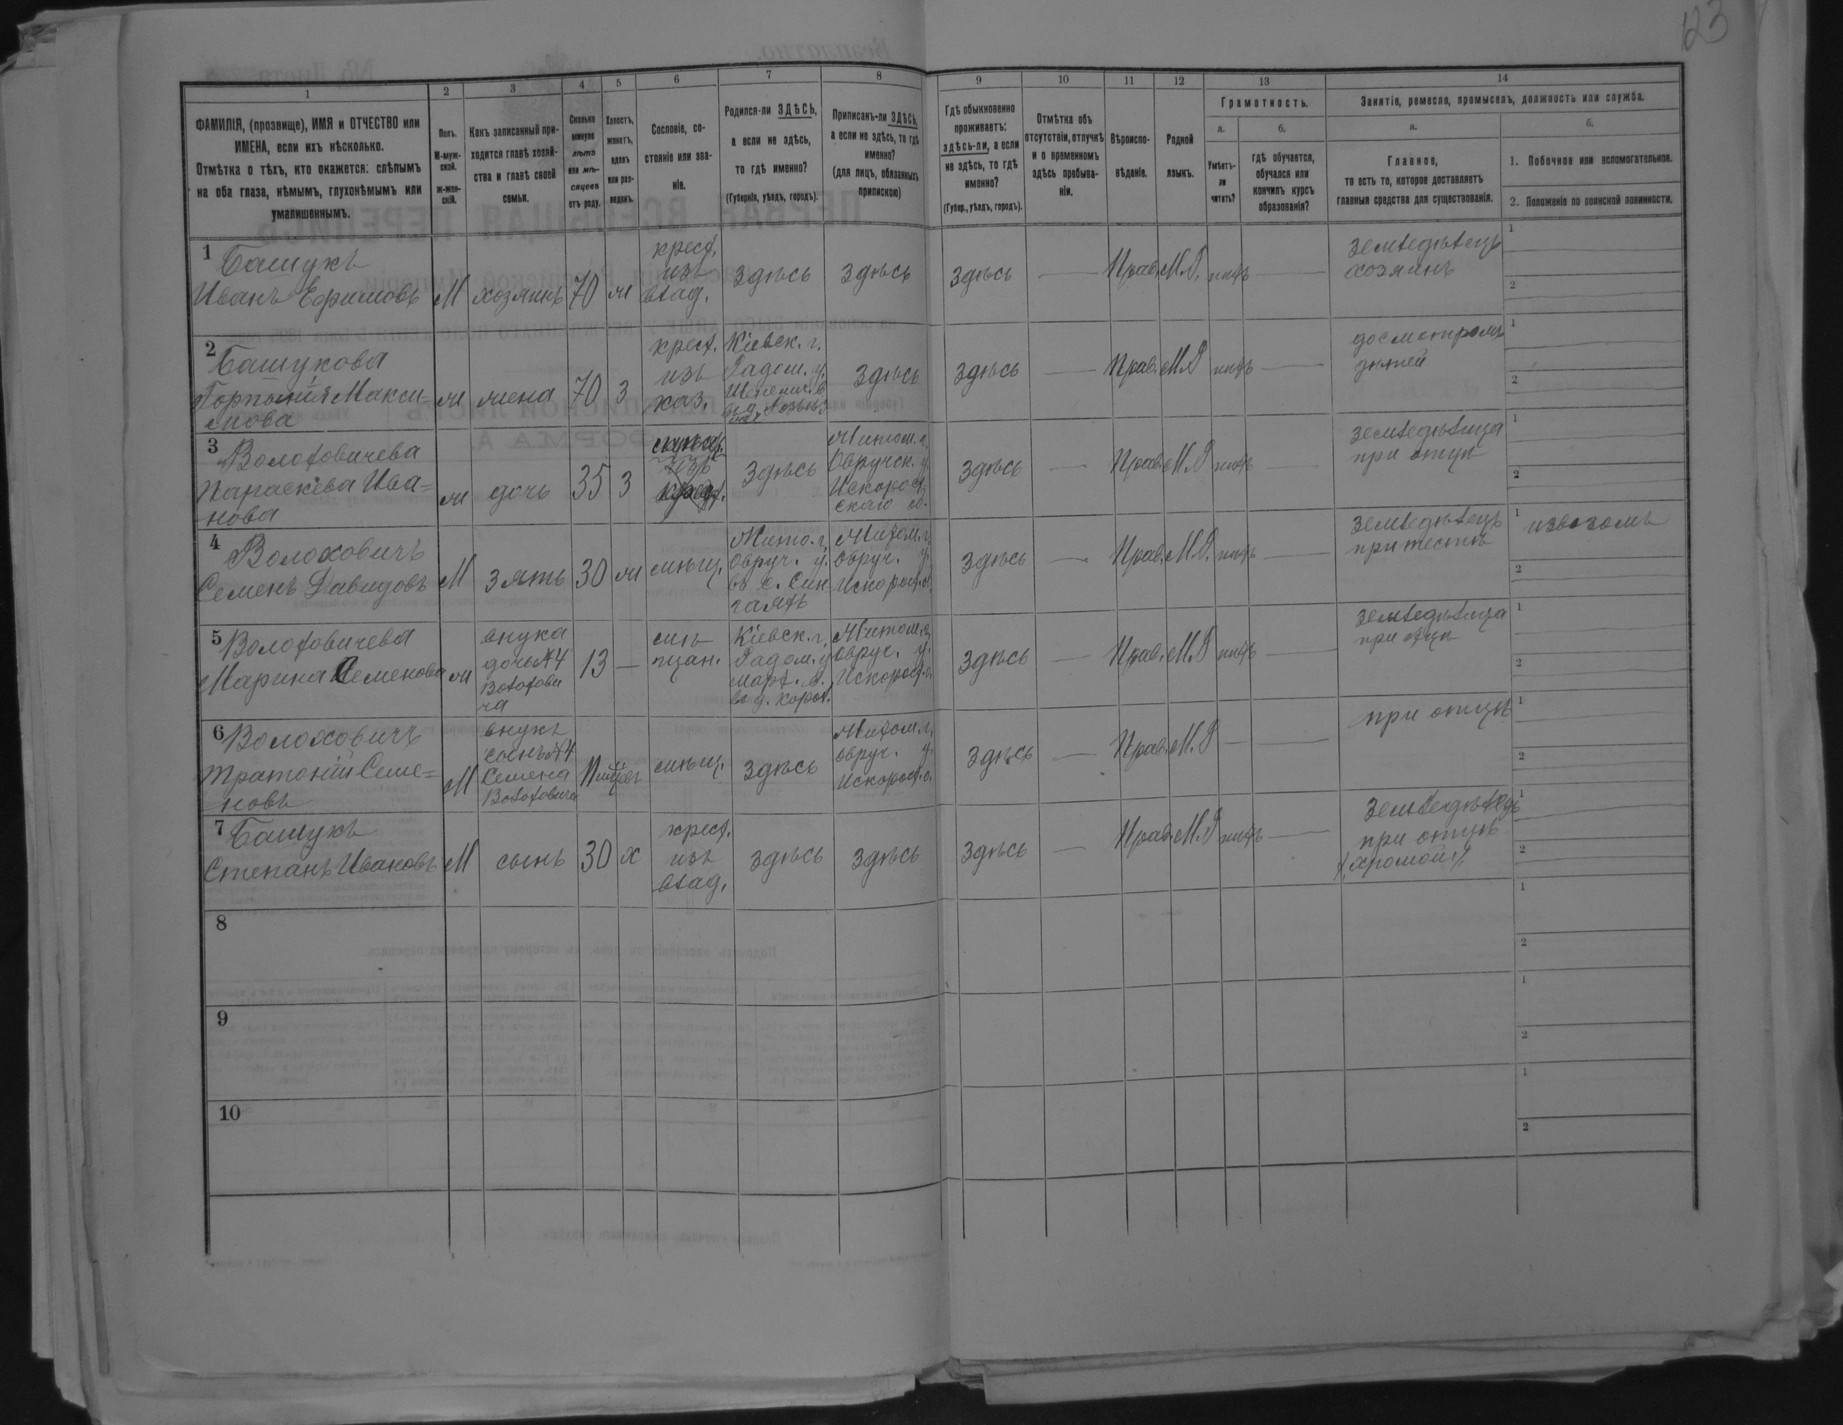 123
1 2 3 4 5 6 7 8 9 10 11 12 13 14
ФАМИЛІЯ, (прозвище), ИМЯ и ОТЧЕСТВО или
ИМЕНА, если ихъ нѣсколько.
Отмѣтка о тѣхъ, кто окажется: слѣпымъ
на оба глаза, нѣмымъ, глухонѣмымъ или
умалишеннымъ.
Полъ.
М-муж-
ской.
Ж-жен-
скій.
Какъ записанный при-
ходится главѣ хозяй-
ства и главѣ своей
семьи.
Сколько
минуло
лѣтъ
или мѣ-
сяцевъ
отъ роду.
Холостъ,
женатъ,
вдовъ
или раз-
веденъ.
Сословіе, со-
стояніе или зва-
ніе.
Родился-ли ЗДѢСЬ,
а если не здѣсь,
то гдѣ именно?
(Губернія, уѣздъ, городъ).
Приписанъ-ли ЗДѢСЬ,
а если не здѣсь, то гдѣ
именно?
(для лицъ, обязанныхъ
припискою)
Гдѣ обыкновенно
проживаетъ:
здѣсь-ли, а если
не здѣсь, то гдѣ
именно?
(Губер., уѣздъ, городъ).
Отмѣтка объ
отсутствіи, отлучкѣ
и о временномъ
здѣсь пребыва-
ніи.
Вѣроиспо-
вѣданіе.
Родной
языкъ.
Грамотность.
а. б.
Умѣетъ-
ли
читать?
гдѣ обучается,
обучался или
кончилъ курсъ
образованія?
Занятіе, ремесло, промыселъ, должность или служба.
а. б.
Главное,
то есть то, которое доставляетъ
главныя средства для существованія.
1. Побочное или вспомогательное.
2. Положеніе по воинской повинности.
1 Башукъ
Иванъ Ефимовъ
М хозяинъ 70 ж
крест.
изъ
влад.
здѣсь здѣсь здѣсь — Прав. М.Р. —
земледѣлецъ
хозяинъ
1
2
2 Башукова
Макси-
мова
ж жена 70 З
крест.
изъ
каз.
Кіевск. г.
Радом. у.
здѣсь здѣсь — Прав. М.Р —
дѣтей
1
2
3 Волоховичева
Параскева Ива-
нова
ж дочь 35 З
здѣсь
Житом. г.
Овручск. у.
Искорост-
скаго о.
здѣсь — Прав. М.Р —
земледѣлица
при отцѣ
1
2
4 Волоховичъ
Семенъ Давидовъ
М зять 30 ж мѣщ.
Житом. г.
Овруч. у.
Житом. г.
овруч. у.
Искорост. о.
здѣсь — Прав. М.Р. —
земледѣлецъ
при тестѣ
1 извозомъ
2
5 Волоховичева
Марина Семенова
ж
внука
дочь №4
Волохови
ча
13 —
мѣ-
щан.
Кіевск. г.
Радом. у.
Житом. г.
овруч. у.
Искорост. о.
здѣсь — Прав. М.Р —
земледѣлица
при отцѣ
1
2
6 Волоховичъ
Семе-
новъ
М
внукъ
сынъ №4
Семена
Волоховича
мѣщ. здѣсь
Житом. г.
овруч. у.
Искорост. о.
здѣсь — Прав. М.Р — —
при отцѣ
1
2
7 Башукъ
Степанъ Ивановъ
М сынъ 30 х
крест.
изъ
влад.
здѣсь здѣсь здѣсь — Прав. М.Р —
земледѣлецъ
при отцѣ
(хромой)
1
2
8
1
2
9
1
2
10
1
2